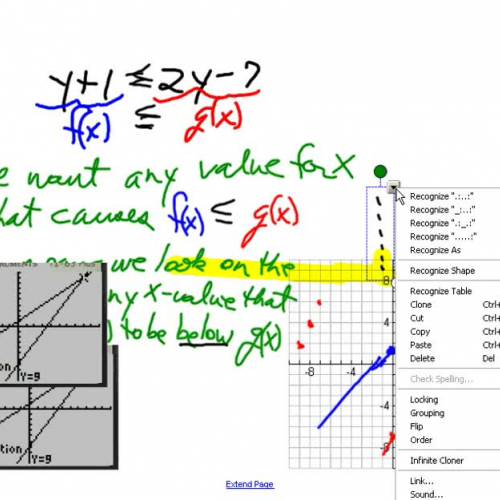 y+1 ≤ 2y-7
f(x) ≤ g(x)
want any value for x
that causes f(x) ≤ g(x)
we look on the
ny x-value that
) to be below g(x)
Y=9
tion
Y=9
Recognize ".:..:"
Recognize "_:..:"
Recognize ".:_.:"
Recognize ".....:"
Recognize As
Recognize Shape
Recognize Table
Clone Ctrl+
Cut Ctrl+
Copy Ctrl+
Paste Ctrl+
Delete Del
Check Spelling...
Locking
Grouping
Flip
Order
Infinite Cloner
Link...
Sound...
4
-8
-4
-8
Extend Page